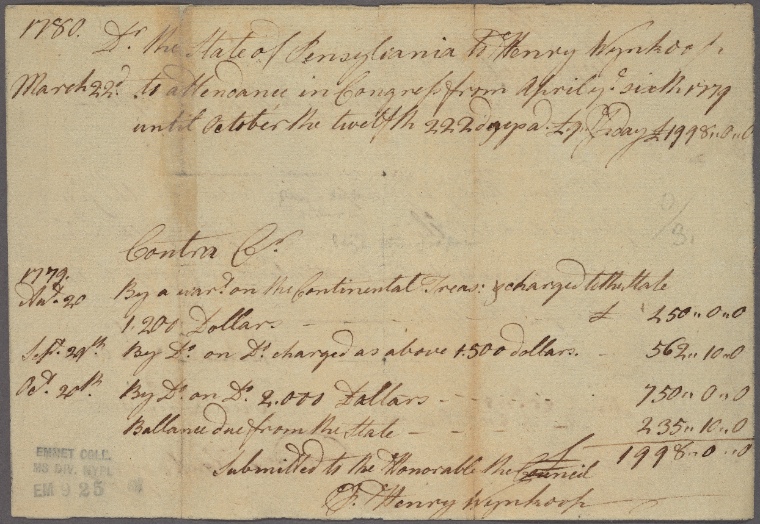 1780. Dr. the State of Pensylvania to Henry Wynkoop.
March 22d. to attendance in Congress from April ye. sixth 1779
until October the twelfth 222 days a. £9 P day £1998,,0,,0
Contra Cr.
1779.
By a wart. on the Continental Treas: & charged to the State
20
1.200 Dollars £ 450,,0,,0
Sept. 29th By Do. on Do. charged as above 1.500 dollars. 562,,10,,0
Oct. 20th. By Do. on Do. 2.000 Dollars 750,,0,,0
Ballance due from the State 235,,10,,0
£ 1998,,0,,0
Submitted to the Honorable the Council
P. Henry Wynkoop
EMMET COLL.
MS DIV. NYPL
EM 925